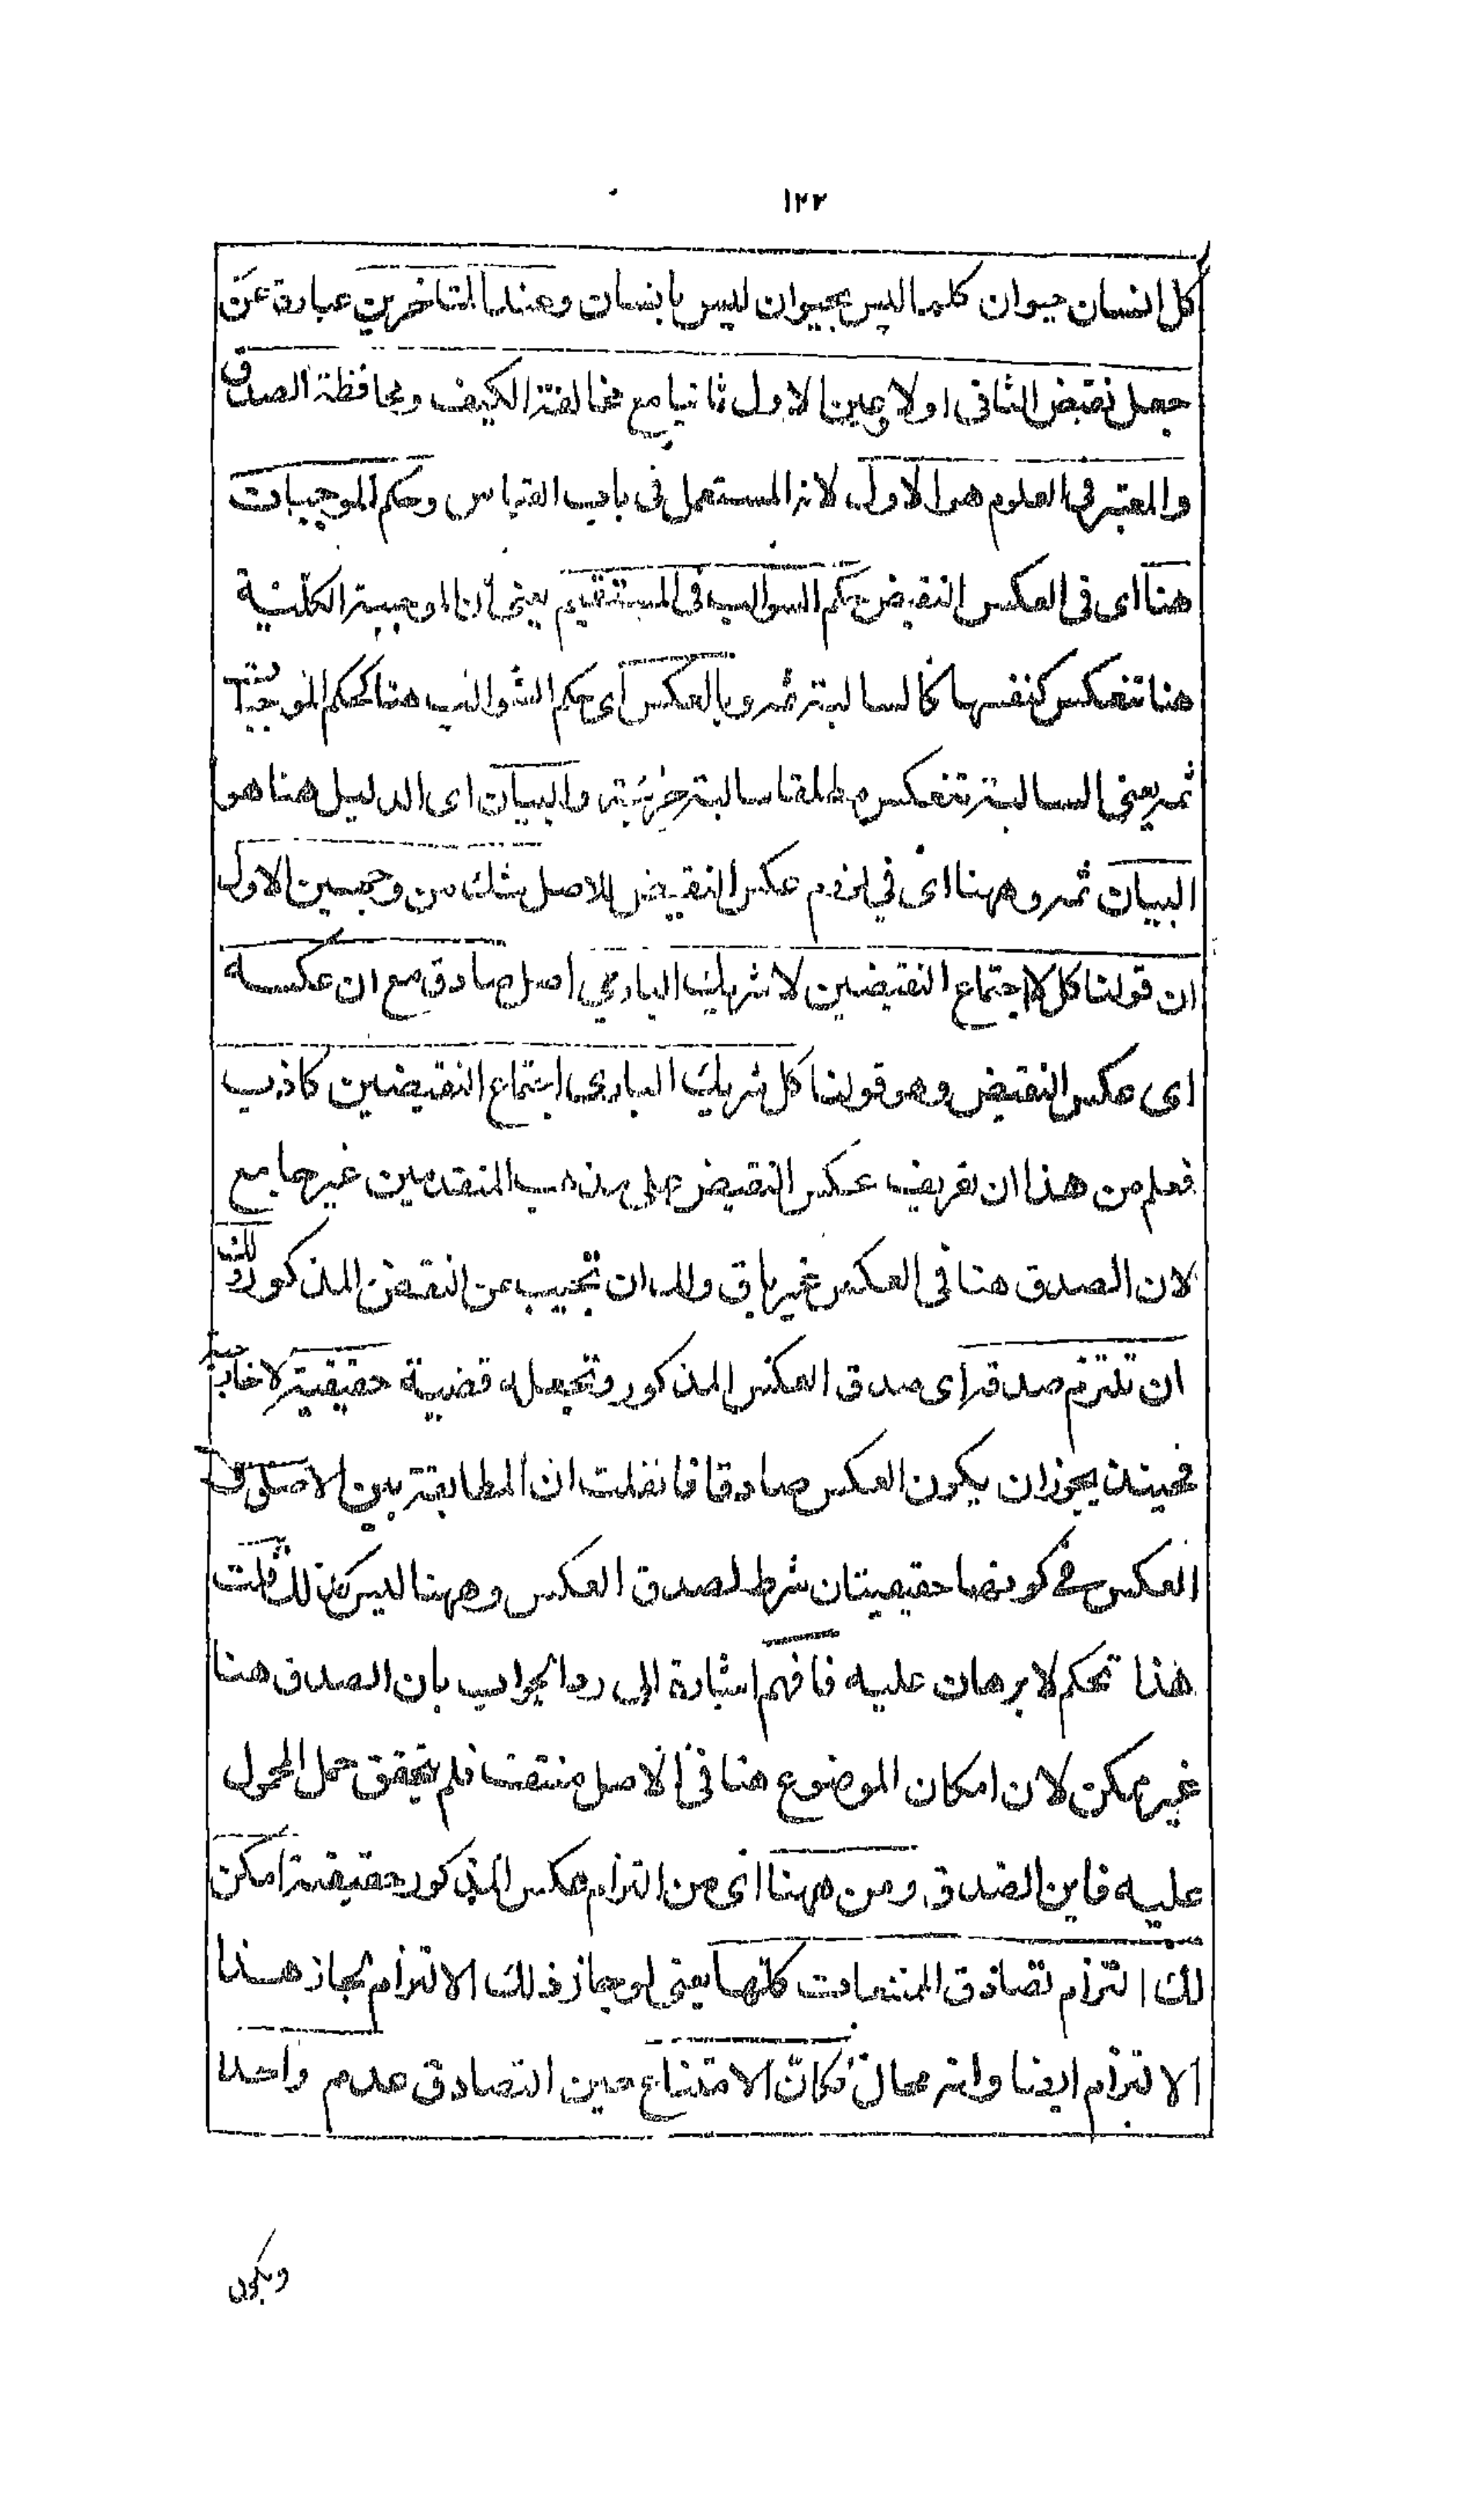 ١٢٢
كل انسان حيوان كلما ليس بحيوان ليس بانسان وعند المتاخرين عبارة عن
جعل نقيض الثانى اولا وعين الاول ثانيا مع مخالفة الكيف ومحافظة الصدق
والمعتبر فى العلوم هو الاول لانه المستعمل فى باب القياس وحكم الموجبات
هنا اى فى العكس النقيض حكم السوالب فى المستقيم يعنى ان الموجبة الكلية
هنا تنعكس كنفسها كالسالبة ثمه وبالعكس اى حكم السوالب هنا كحكم الموجبات
ثمه يعنى السالبة تنعكس مطلقا سالبة جزئية والبيان اى الدليل هنا هو
البيان ثمه وههنا اى في لزوم عكس النقيض للاصل شك من وجهين الاول
ان قولنا كل لا اجتماع النقيضين لا شريك الباري اصل صادق مع ان عكسه
اى عكس النقيض وهو قولنا كل شريك البارى اجتماع النقيضين كاذب
فعلم من هذا ان تعريف عكس النقيض على مذهب المتقدمين غير جامع
لان الصدق هنا فى العكس غير باق ولك ان تجيب عن النقض المذكور ولك
ان تلتزم صدقه اى صدق العكس المذكور وتجعله قضية حقيقية لا خارجية
فحينئذ يجوز ان يكون العكس صادقا فان قلت ان المطابقة بين الاصل و
العكس في كونهما حقيقيتان شرط لصدق العكس وههنا ليس كذلك قلت
هذا تحكم لا برهان عليه فافهم اشارة الى رد الجواب بان الصدق هنا
غير ممكن لان امكان الموضوع هنا فى الاصل منتف فلم يتحقق حمل المحمول
عليه فاين الصدق ومن ههنا اى من التزام عكس المذكور حقيقية امكن
لك التزام تصادق الممتنعات كلها يعنى لو جاز ذلك الالتزام لجاز هذا
الالتزام ايضا وانه محال فكان الامتناع حين التصادق عدم واحدا
ويكون